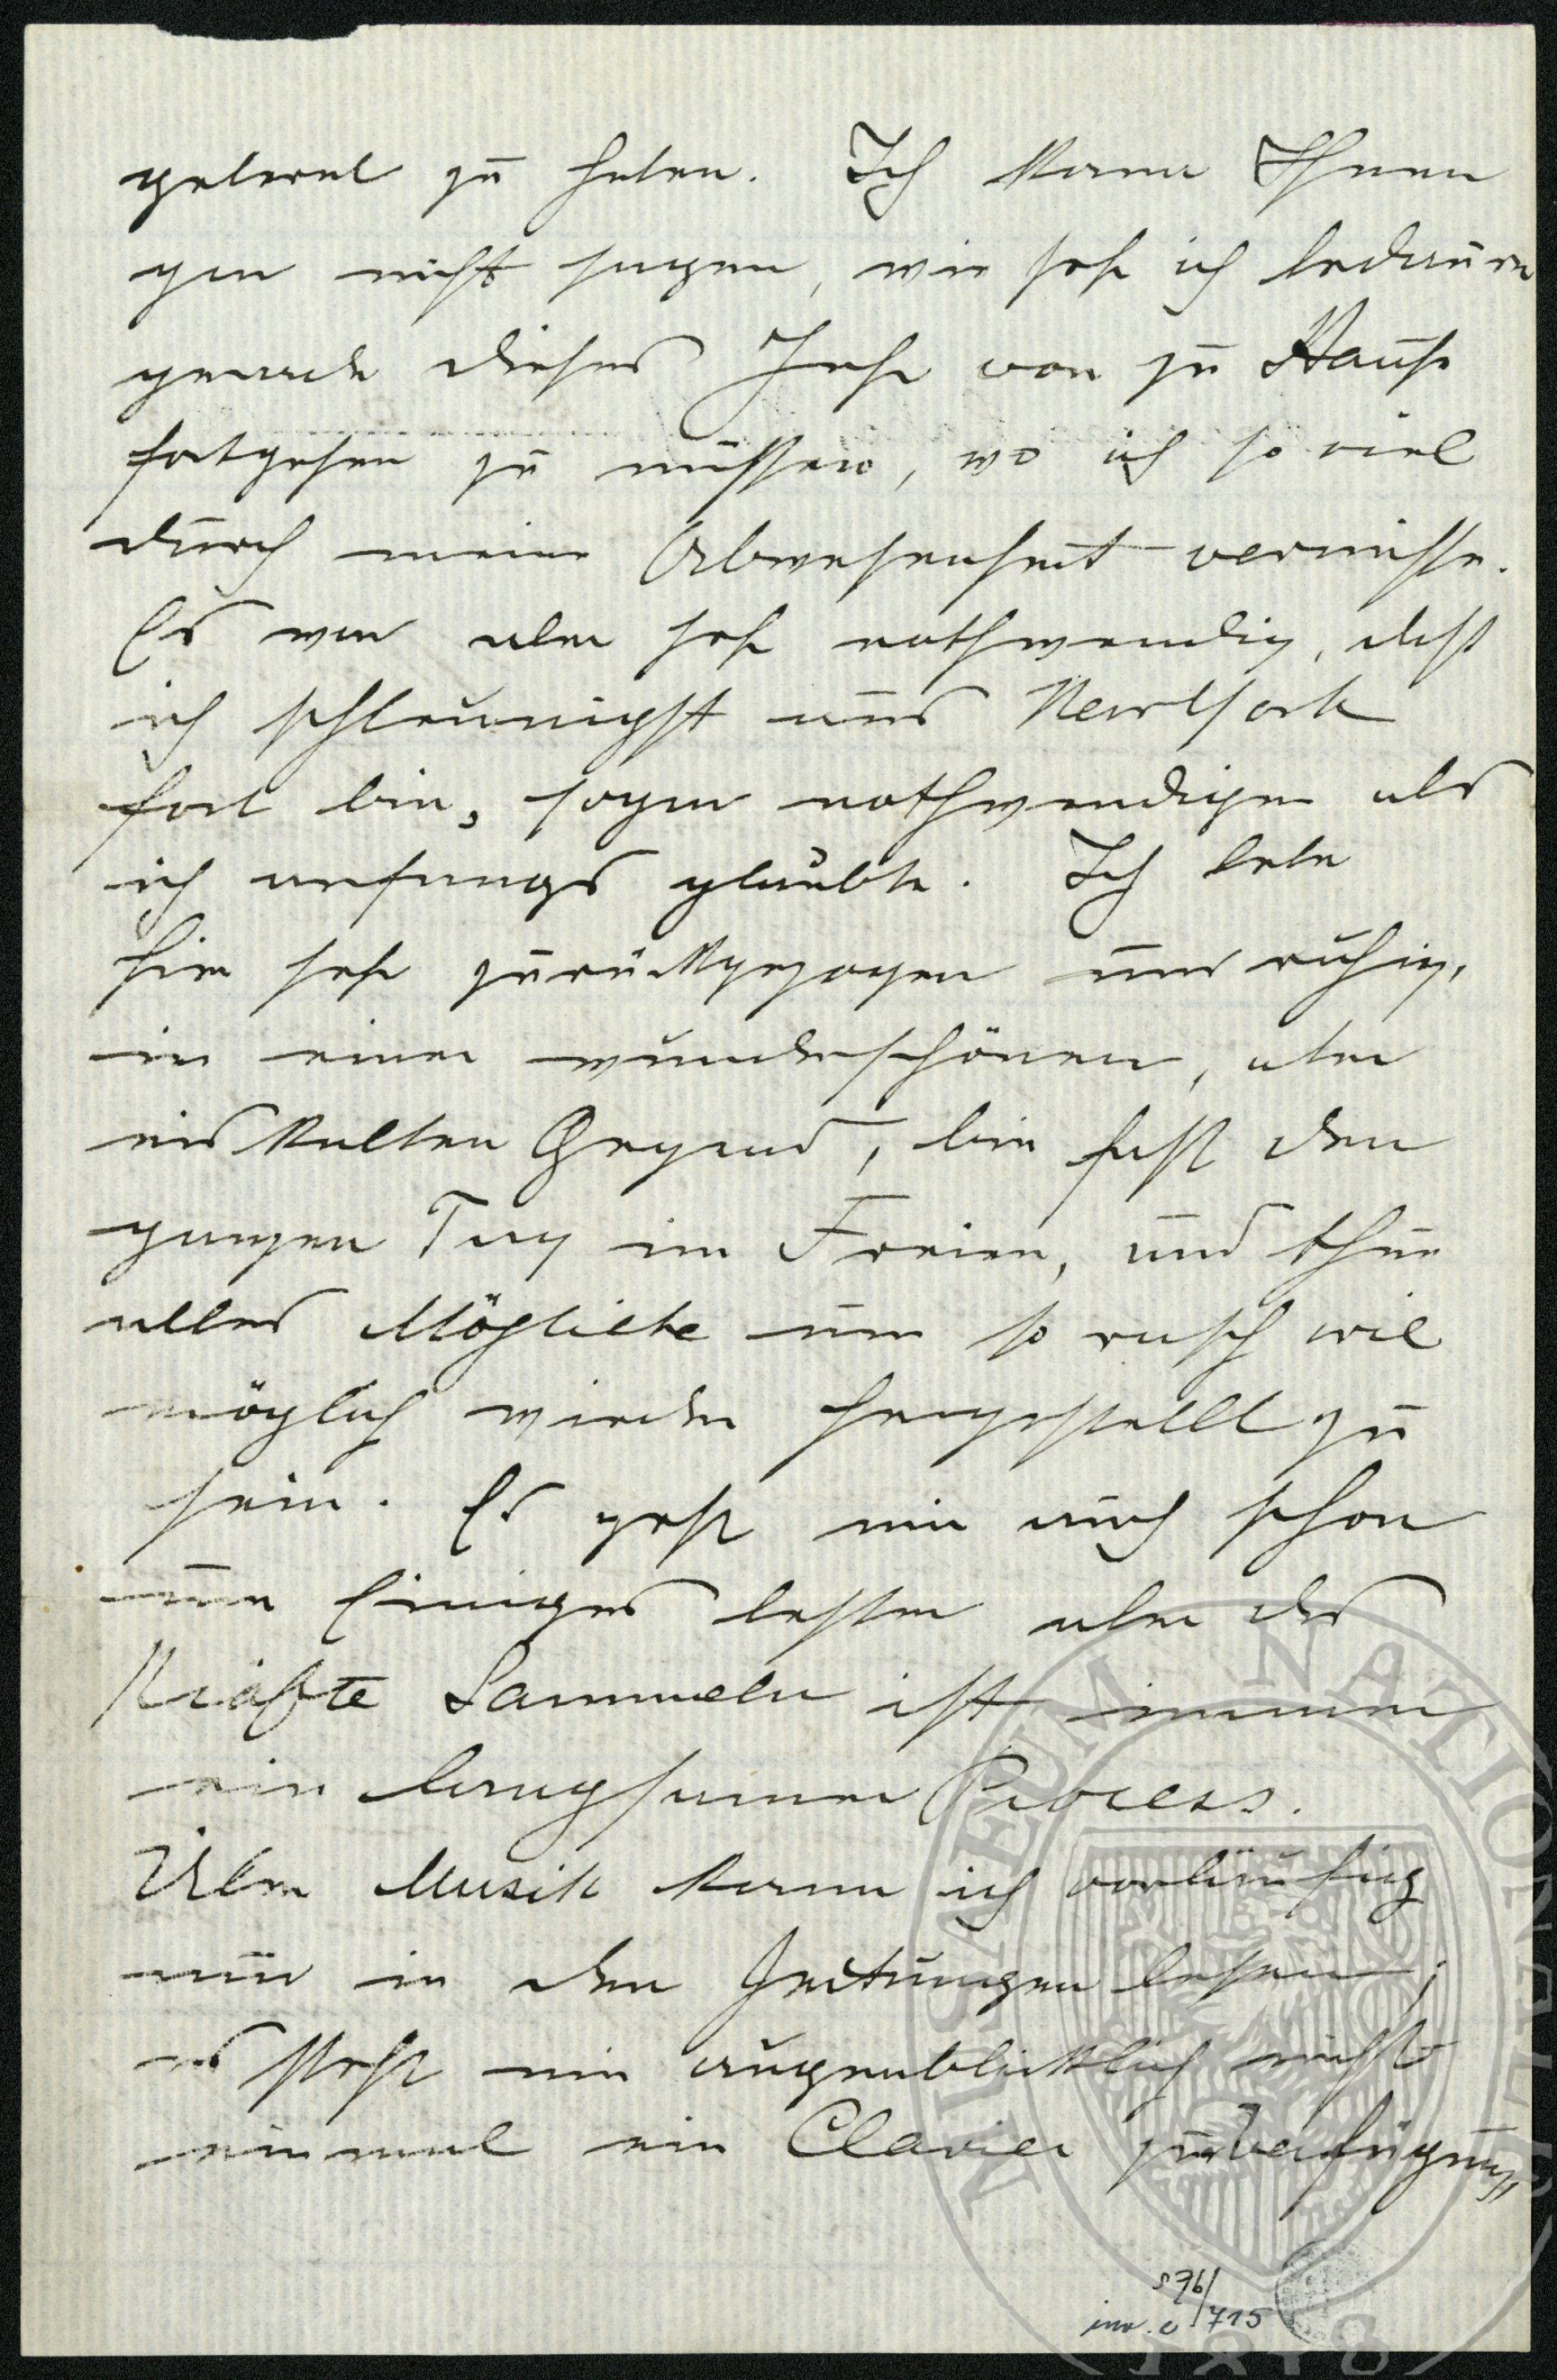 gelernt zu haben. Ich kann Ihnen
gar nicht sagen, wie sehr ich bedaure
gerade dieses Jahr von zu Hause
fortgehen zu müssen, wo ich so viel
durch meine Abwesenheit vermisse.
Es war aber sehr nothwendig, daß
ich schleunigst aus New York
fort bin, sogar nothwendiger als
ich anfangs glaubte. Ich lebe
hier sehr zurückgezogen und ruhig,
in einer wunderschönen, aber
eiskalten Gegend, bin fast den
ganzen Tag im Freien, und thue
alles Mögliche um so rasch wie
möglich wieder hergestellt zu
sein. Es geht mir auch schon
um Einiges besser aber das
Kräfte Sammeln ist immer
ein langsamer Process.
Über Musik kann ich vorläufig
nur in den Zeitungen lesen;
es steht mir augenblicklich nicht
einmal ein Clavier zur Verfügung
S 76/
inv. č 715
MUSAEUM NATIONALE
1818